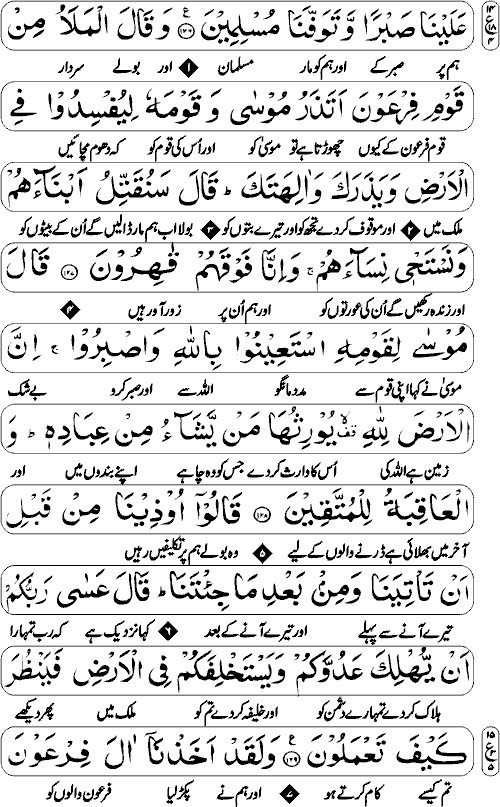 عَلَيْنَا صَبْرًا وَّ تَوَفَّنَا مُسْلِمِيْنَ ﴿۱۲۶﴾ وَ قَالَ الْمَلَاُ مِنْ
ہم پر صبر کے اور ہم کو مار مسلمان ۱ اور بولے سردار
قَوْمِ فِرْعَوْنَ اَتَذَرُ مُوْسٰى وَ قَوْمَهٗ لِيُفْسِدُوْا فِي
قوم فرعون کے کیوں چھوڑتا ہے تو موسیٰ کو اور اُس کی قوم کو کہ دھوم مچائیں
الْاَرْضِ وَ يَذَرَكَ وَ اٰلِهَتَكَ ؕ قَالَ سَنُقَتِّلُ اَبْنَآءَهُمْ
ملک میں ۲ اور موقوف کر دے تجھ کو اور تیرے بتوں کو ۳ بولا اب ہم مار ڈالیں گے اُن کے بیٹوں کو
وَ نَسْتَحْيٖ نِسَآءَهُمْ ۚ وَ اِنَّا فَوْقَهُمْ قٰهِرُوْنَ ﴿۱۲۷﴾ قَالَ
اور زندہ رکھیں گے اُن کی عورتوں کو اور ہم اُن پر زور آور ہیں ۴
مُوْسٰى لِقَوْمِهِ اسْتَعِيْنُوْا بِاللّٰهِ وَ اصْبِرُوْا ۚ اِنَّ
موسیٰ نے کہا اپنی قوم سے مدد مانگو اللہ سے اور صبر کرو بے شک
الْاَرْضَ لِلّٰهِ ۙ۫ يُوْرِثُهَا مَنْ يَّشَآءُ مِنْ عِبَادِهٖ ؕ وَ
زمین ہے اللہ کی اُس کا وارث کر دے جس کو وہ چاہے اپنے بندوں میں اور
الْعَاقِبَةُ لِلْمُتَّقِيْنَ ﴿۱۲۸﴾ قَالُوْۤا اُوْذِيْنَا مِنْ قَبْلِ
آخر میں بھلائی ہے ڈرنے والوں کے لیے ۵ وہ بولے ہم پر تکلیفیں رہیں
اَنْ تَاْتِيَنَا وَ مِنْۢ بَعْدِ مَا جِئْتَنَا ؕ قَالَ عَسٰى رَبُّكُمْ
تیرے آنے سے پہلے اور تیرے آنے کے بعد ۶ کہا نزدیک ہے کہ رب تمہارا
اَنْ يُّهْلِكَ عَدُوَّكُمْ وَ يَسْتَخْلِفَكُمْ فِي الْاَرْضِ فَيَنْظُرَ
ہلاک کر دے تمہارے دشمن کو اور خلیفہ کر دے تم کو ملک میں پھر دیکھے
كَيْفَ تَعْمَلُوْنَ ﴿۱۲۹﴾ وَ لَقَدْ اَخَذْنَاۤ اٰلَ فِرْعَوْنَ
تم کیسے کام کرتے ہو ۷ اور ہم نے پکڑ لیا فرعون والوں کو